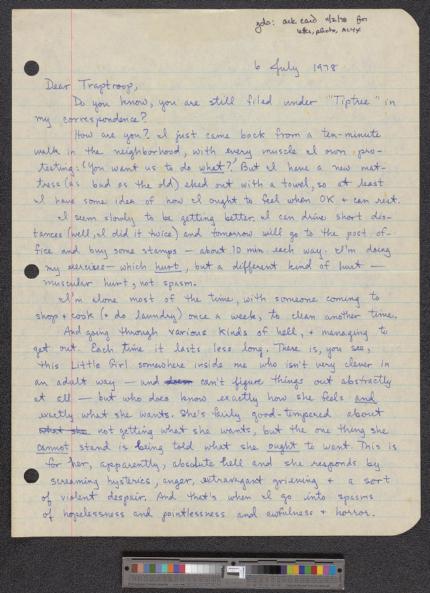 ack card 9/2/78 for
6 July 1978
Dear Traptroop,
Do you know, you are still filed under "Tiptree" in
my correspondence?
How are you? I just came back from a ten-minute
walk in the neighborhood, with every muscle I own pro-
testing: "You want us to do what?" But I have a new mat-
tress (as bad as the old) eked out with a towel, so at least
I have some idea of how I ought to feel when OK + can rest.
I seem slowly to be getting better. I can drive short dis-
tances (well, I did it twice) and tomorrow will go to the post of-
fice and buy some stamps — about 10 min. each way. I'm doing
my exercises — which hurt, but a different kind of hurt —
muscular hurt, not spasm.
I'm alone most of the time, with someone coming to
shop + cook (+ do laundry) once a week, to clean another time.
And going through various kinds of hell, + managing to
get out. Each time it lasts less long. There is, you see,
this Little Girl somewhere inside me who isn't very clever in
an adult way — and can't figure things out abstractly
at all — but who does know exactly how she feels and
exactly what she wants. She's fairly good-tempered about
what she not getting what she wants, but the one thing she
cannot stand is being told what she ought to want. This is
for her, apparently, absolute hell and she responds by
screaming hysterics, anger, extravagant grieving + a sort
of violent despair. And that's when I go into spasms
of hopelessness and pointlessness and awfulness + horror.